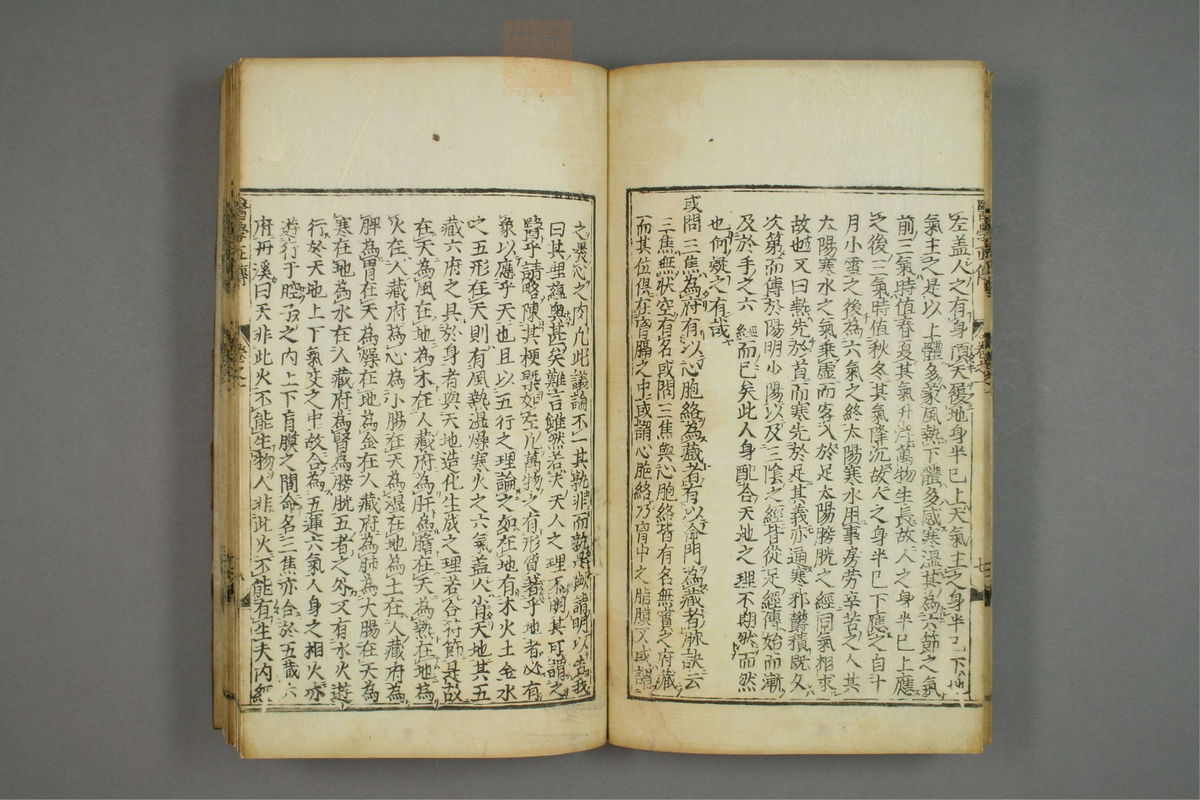 左盖人之有身頂天履地身半已上天氣主之身半已下地
氣主之是以上體多蒙風熱下體多感寒濕其為六節之氣
前三氣時值春夏其氣升浮萬物生長故人之身半已上應
之後三氣時值秋冬其氣降沉故人之身半已下應之自十
月小雪之後為六氣之終太陽寒水用事房劳辛苦之人其
太陽寒水之氣乗虛而客入於足太陽膀胱之經同氣相求
故也又曰熱先於首而寒先於足其義亦通寒邪欝積既久
次第而傳於陽明少陽以及三陰之經皆從足經傳始而漸
及於手之六經而已矣此人身配合天地之理不期然而然
也何疑之有哉
或問三焦為府有以心胞絡為藏者有以命門為藏者脉訣云
三焦無狀空有名或問三焦與心胞絡皆有名無實之府藏
而其位俱在胷膈之中或謂心胞絡乃胷中之脂膜又或謂
之褁心之肉凡此議論不一其孰非而孰是歟請明以告我
曰其理蘊奥甚矣難言雖然若夫天人之理不明其可謂之
醫乎請略陳其梗槩如左凡萬物之有形質著乎地者必有
象以應乎天也且以五行之理論之如在地有木火土金水
之五形在天則有風熱濕燥寒火之六氣盖人肖天地其五
藏六府之具於身者與天地造化生成之理若合符節是故
在天為風在地為木在人藏府為肝為膽在天為熱在地為
火在人藏府為心為小腸在天為濕在地為土在人藏府為
脾為胃在天為燥在地為金在人藏府為肺為大腸在天為
寒在地為水在人藏府為腎為膀胱五者之外又有水火遊
行於天地上下氣交之中故合為五運六氣人身之相火亦
遊行于腔子之內上下肓膜之間命名三焦亦合於五藏六
府丹溪曰天非此火不能生物人非此火不能有生夫內經
醫學正傳
卷之一